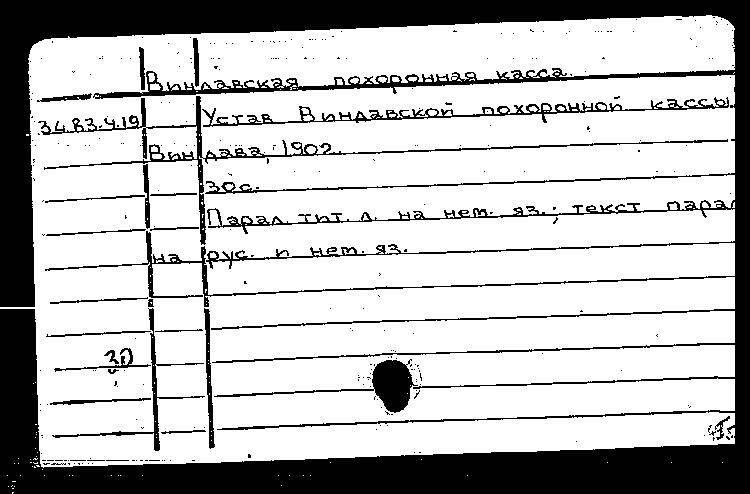 Виндавская похоронная касса.
34.83.4.19 Устав Виндавской похоронной кассы.
Виндава, 1902.
30с.
Парал. тит. л. на нем. яз.; текст парал
на рус. и нем. яз.
30